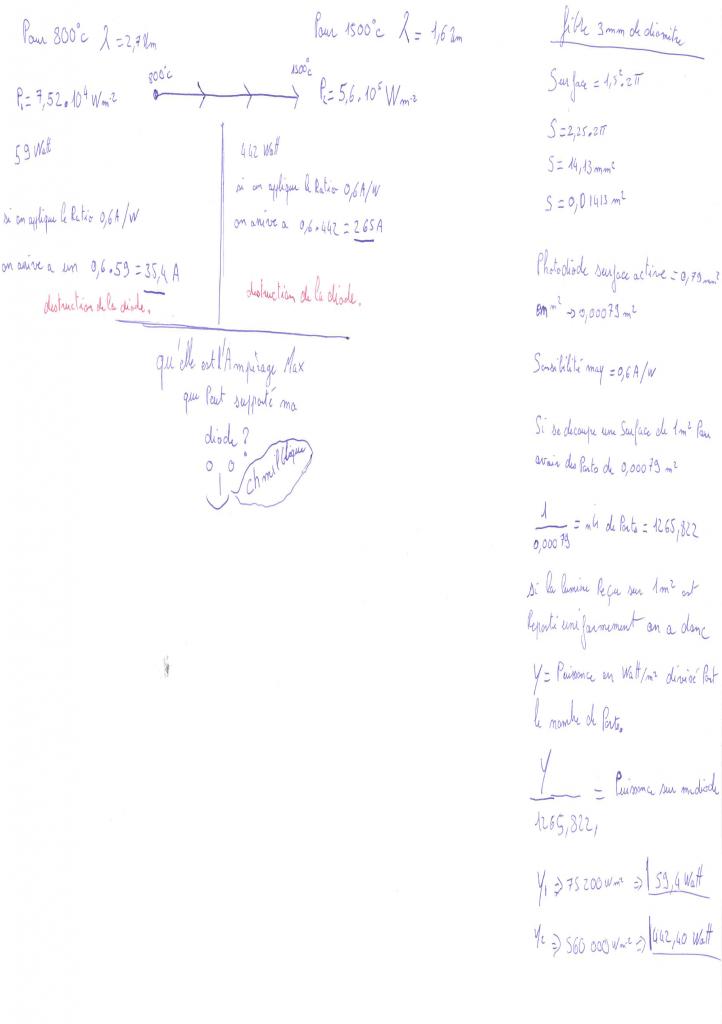 Pour 800°C λ = 2,7 µm
Pour 1500°C λ = 1,62 µm
800°C
1500°C
P₁ = 7,52 . 10⁴ W m⁻²
P₂ = 5,6 . 10⁵ W m⁻²
59 Watt
si on applique le Ratio 0,6 A/W
on arrive a un 0,6 . 59 = 35,4 A
destruction de la diode.
442 Watt
si on applique le Ratio 0,6 A/W
on arrive a 0,6 . 442 = 265 A
destruction de la diode.
qu'elle est l'Ampérage Max
que Peut supporté ma
diode ?
chmilblique
fible 3mm de diamètre
Surface = 1,5² . 2π
S = 2,25 . 2π
S = 14,13 mm²
S = 0,01413 m²
Photodiode surface active = 0,79 mm²
en m² → 0,00079 m²
Sensibilité max = 0,6 A/W
Si je decoupe une Surface de 1 m² Pour
avoir des Parts de 0,00079 m²
1 / 0,00079 = nb de Parts = 1265,822
si la lumière Reçue sur 1 m² est
Reparti uniformement on a donc
Y = Puissance en Watt/m² divisé Part
le nombre de Parts.
Y / 1265,822, = Puissance sur ma diode
Y₁ ⇒ 75 200 W m⁻² ⇒ 59,4 Watt
Y₂ ⇒ 560 000 W m⁻² ⇒ 442,40 Watt